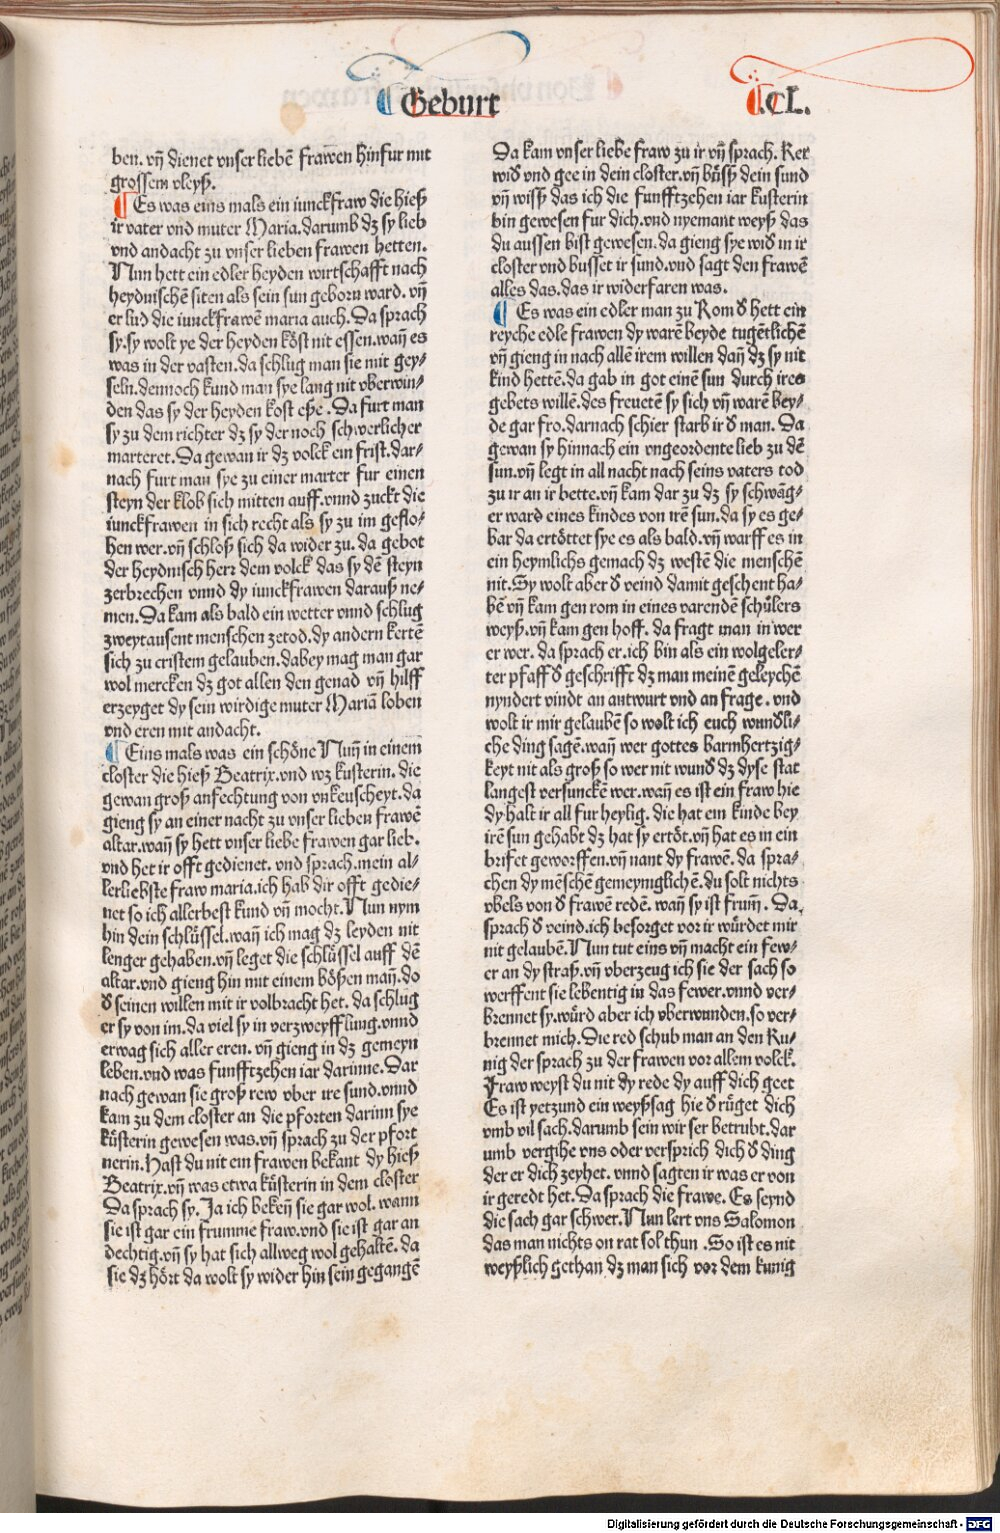 Geburt
.CL.
ben. vn̄ dienet vnser liebē frawen hinfur mit
grossem vleyß.
Es was eins mals ein iunckfraw die hieß
ir vater vnd muter Maria. darumb dz sy lieb
vnd andacht zu vnser lieben frawen hetten.
Nun hett ein edler heyden wirtschafft nach
heydnischē siten als sein sun geborn ward. vn̄
er lud die iunckfrawē maria auch. Da sprach
sy. sy wolt ye der heyden kőst nit essen. wan̄ es
was in der vasten. da schlug man sie mit gey⸗
seln. dennoch kund man sye lang nit vberwin⸗
den das sy der heyden kost eße. Da furt man
sy zu dem richter dz sy der noch schwerlicher
marteret. Da gewan ir dz volck ein frist. dar⸗
nach furt man sye zu einer marter fur einen
steyn der klob sich mitten auff. vnnd zuckt die
iunckfrawen in sich recht als sy zu im geflo⸗
hen wer. vn̄ schloß sich da wider zu. da gebot
der heydnisch herr dem volck das sy dē steyn
zerbrechen vnnd dy iunckfrawen darauß ne⸗
men. Da kam als bald ein wetter vnnd schlug
zweytausent menschen zetod. dy andern kertē
sich zu cristem gelauben. dabey mag man gar
wol mercken dz got allen den genad vn̄ hilff
erzeyget dy sein wirdige muter Mariā loben
vnd eren mit andacht.
Eins mals was ein schőne Nun̄ in einem
closter die hieß Beatrix. vnd wz kusterin. die
gewan groß anfechtung von vnkeuscheyt. da
gieng sy an einer nacht zu vnser lieben frawē
altar. wan̄ sy hett vnser liebe frawen gar lieb.
vnd het ir offt gedienet. vnd sprach. mein al⸗
lerliebste fraw maria. ich hab dir offt gedie⸗
net so ich allerbest kund vn̄ mocht. Nun nym
hin dein schlűssel. wan̄ ich mag dz leyden nit
lenger gehaben. vn̄ leget die schlűssel auff dē
altar. vnd gieng hin mit einem bőßen man̄. do
d̕ seinen willen mit ir volbracht het. da schlug
er sy von im. da viel sy in verzweyfflung. vnnd
erwag sich aller eren. vn̄ gieng in dz gemeyn
leben. vnd was funfftzehen iar darinne. Dar
nach gewan sie groß rew vber ire sund. vnnd
kam zu dem closter an die pforten darinn sye
kűsterin gewesen was. vn̄ sprach zu der pfort
nerin. Hast du nit ein frawen bekant dy hieß
Beatrix. vn̄ was etwa kűsterin in dem closter
Da sprach sy. Ja ich beken̄ sie gar wol. wann
sie ist gar ein frumme fraw. vnd sie ist gar an
dechtig. vn̄ sy hat sich allweg wol gehaltē. da
sie dz hőrt da wolt sy wider hin sein gegangē
Da kam vnser liebe fraw zu ir vn̄ sprach. Ker
wid̕ vnd gee in dein closter. vn̄ bűsß dein sund
vn̄ wisß das ich die funfftzehen iar kusterin
bin gewesen fur dich. vnd nyemant weyß das
du aussen bist gewesen. da gieng sye wid̕ in ir
closter vnd busset ir sund. vnd sagt den frawē
alles das. das ir widerfaren was.
Es was ein edler man zu Rom d̕ hett ein
reyche edle frawen dy warē beyde tugētlichē
vn̄ gieng in nach allē irem willen dan̄ dz sy nit
kind hettē. da gab in got einē sun durch ires
gebets willē. des freuetē sy sich vn̄ warē bey⸗
de gar fro. darnach schier starb ir d̕ man. Da
gewan sy hinnach ein vngeordente lieb zu dē
sun. vn̄ legt in all nacht nach seins vaters tod
zu ir an ir bette. vn̄ kam dar zu dz sy schwāg⸗
er ward eines kindes von irē sun. da sy es ge⸗
bar da ertőttet sye es als bald. vn̄ warff es in
ein heymlichs gemach dz westē die menschē
nit. Sy wolt aber d̕ veind damit geschent ha⸗
bē vn̄ kam gen rom in eines varendē schűlers
weyß. vn̄ kam gen hoff. da fragt man in wer
er wer. da sprach er. ich bin als ein wolgeler⸗
ter pfaff d̕ geschrifft dz man meinē geleychē
nyndert vindt an antwurt vnd an frage. vnd
wolt ir mir gelaubē so wolt ich euch wundli⸗
che ding sagē. wan̄ wer gottes barmhertzig⸗
keyt nit als groß so wer nit wund̕ dz dyse stat
langest versunckē wer. wan̄ es ist ein fraw hie
dy halt ir all fur heylig. die hat ein kinde bey
irē sun gehabt dz hat sy ertőt. vn̄ hat es in ein
brifet geworffen. vn̄ nant dy frawē. da spra⸗
chen dy mēschē gemeyniglichē. du solt nichts
vbels von d̕ frawē redē. wan̄ sy ist frum̄. Da
sprach d̕ veind. ich besorget vor ir wűrdet mir
nit gelaubē. Nun tut eins vn̄ macht ein few⸗
er an dy straß. vn̄ vberzeug ich sie der sach so
werffent sie lebentig in das fewer. vnnd ver⸗
brennet sy. wűrd aber ich vberwunden. so ver⸗
brennet mich. Die red schub man an den Ku⸗
nig der sprach zu der frawen vor allem volck.
Fraw weyst du nit dy rede dy auff dich geet
Es ist yetzund ein weyßsag hie d̕ rűget dich
vmb vil sach. darumb sein wir ser betrubt. dar
umb vergihe vns oder versprich dich d̕ ding
der er dich zeyhet. vnnd sagten ir was er von
ir geredt het. Da sprach die frawe. Es seynd
die sach gar schwer. Nun lert vns Salomon
das man nichts on rat sol thun. So ist es nit
weyßlich gethan dz man sich vor dem kunig
Digitalisierung gefördert durch die Deutsche Forschungsgemeinschaft - DFG